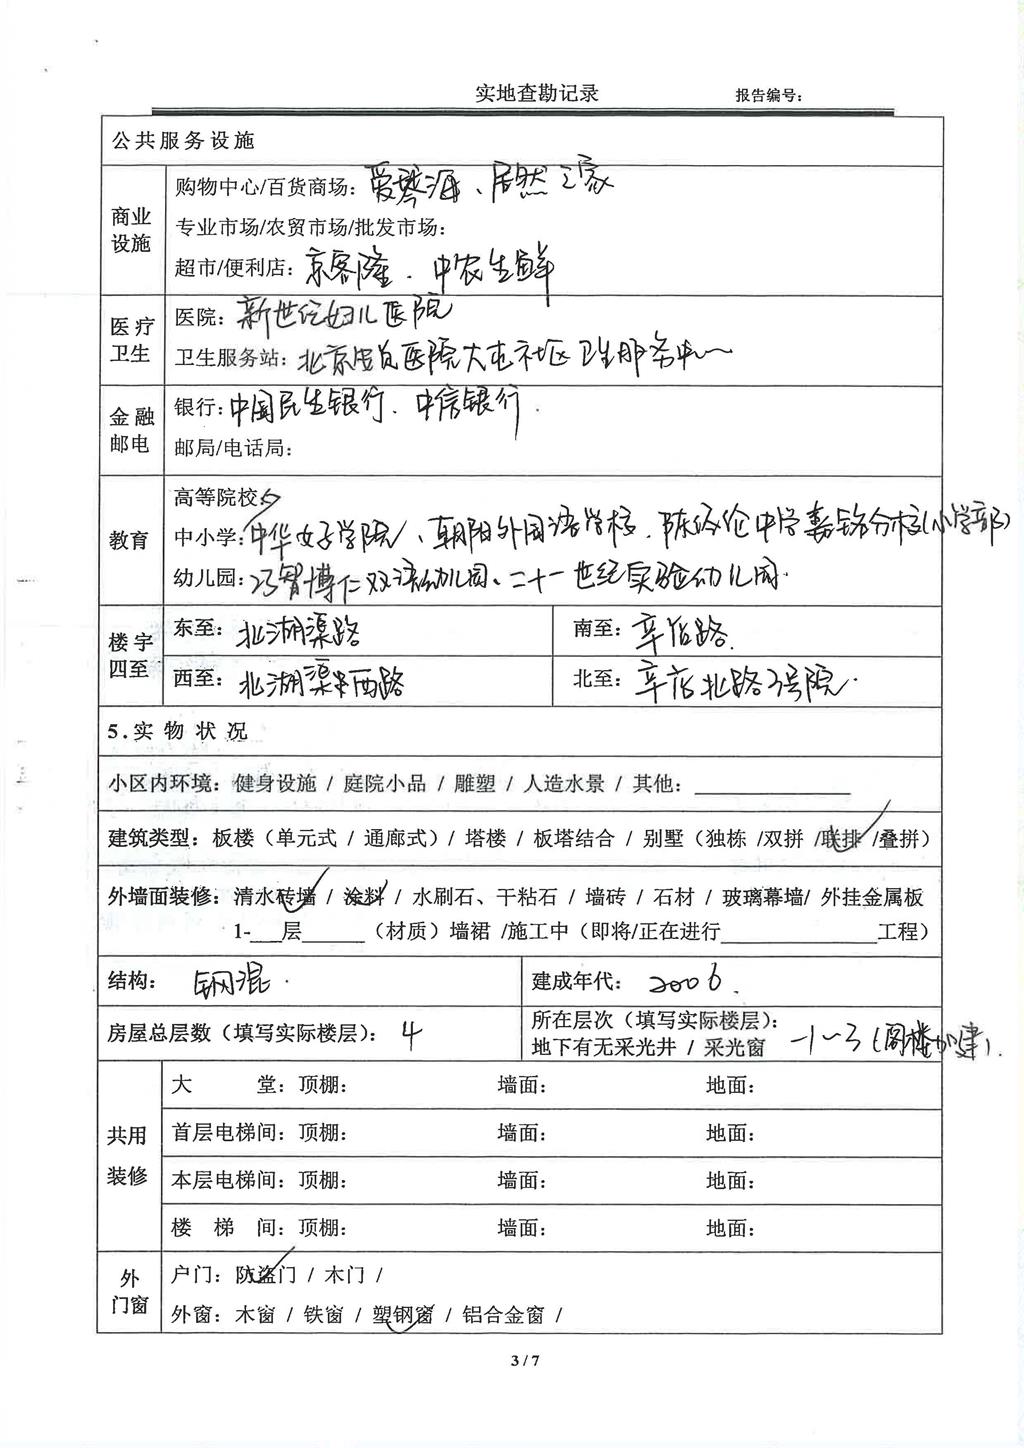 实地查勘记录 报告编号：
公共服务设施
商业设施
购物中心/百货商场：爱琴海、居然之家
专业市场/农贸市场/批发市场：
超市/便利店：京客隆．中农生鲜
医疗卫生
医院：新世纪妇儿医院
卫生服务站：北京 医院大屯社区卫生服务中心
金融邮电
银行：中国民生银行．中信银行．
邮局/电话局：
教育
高等院校：
中小学：中华女子学院、朝阳外国语学校．陈经伦中学嘉铭分校(小学部)
幼儿园：冯智博仁双语幼儿园、二十一世纪实验幼儿园．
楼宇四至
东至：北湖渠路 南至：辛店路．
西至：北湖渠西路 北至：辛店北路3号院．
5.实物状况
小区内环境：健身设施 / 庭院小品 / 雕塑 / 人造水景 / 其他：
建筑类型：板楼（单元式 / 通廊式）/ 塔楼 / 板塔结合 / 别墅（独栋 /双拼 /联排 /叠拼）
外墙面装修：清水砖墙 / 涂料 / 水刷石、干粘石 / 墙砖 / 石材 / 玻璃幕墙/ 外挂金属板
1-___层______（材质）墙裙 /施工中（即将/正在进行_______________工程）
结构：钢混． 建成年代：2006．
房屋总层数（填写实际楼层）：4 所在层次（填写实际楼层）：
地下有无采光井 / 采光窗 -1~3(阁楼加建)．
共用装修
大 堂：顶棚： 墙面： 地面：
首层电梯间：顶棚： 墙面： 地面：
本层电梯间：顶棚： 墙面： 地面：
楼 梯 间：顶棚： 墙面： 地面：
外门窗
户门：防盗门 / 木门 /
外窗：木窗 / 铁窗 / 塑钢窗 / 铝合金窗 /
3 / 7